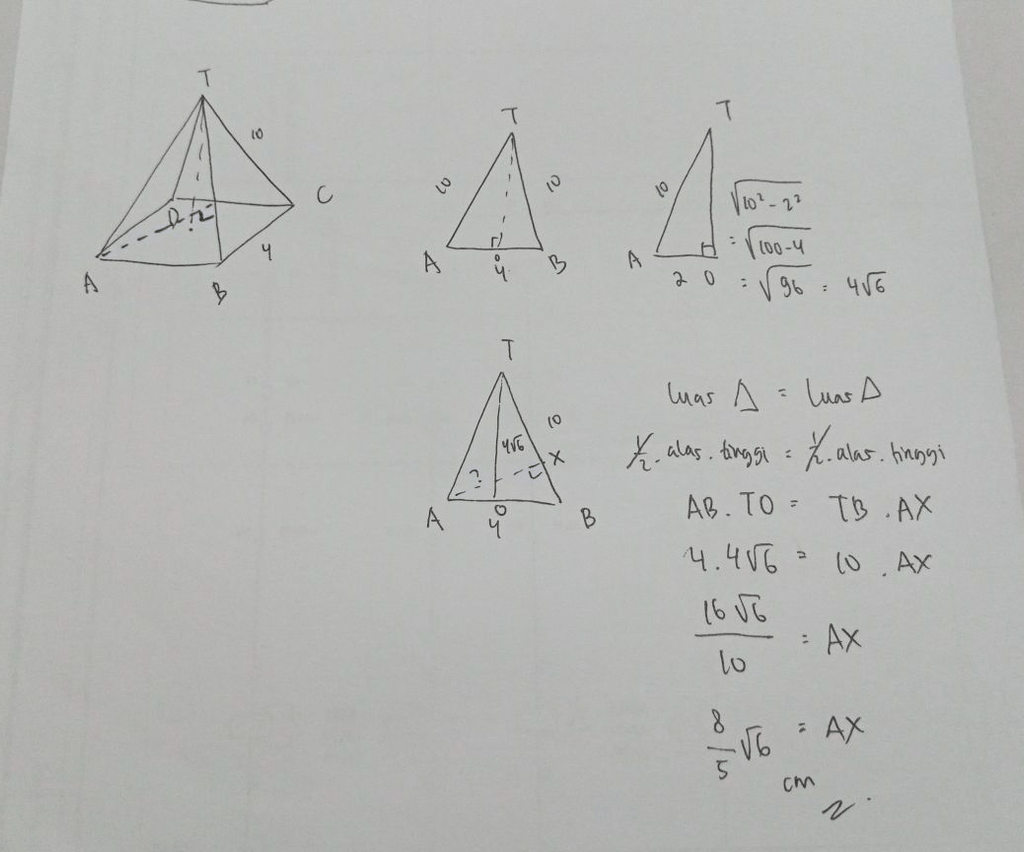 T
10
D
C
4
A
B
T
10
10
A
O
4
B
T
10
√10² - 2²
= √100-4
A
2 O
= √96 = 4√6
T
10
4√6
?
X
A
O
4
B
Luas Δ = Luas Δ
1/2 . alas . tinggi = 1/2 . alas . tinggi
AB . TO = TB . AX
4 . 4√6 = 10 . AX
16√6/10 = AX
8/5 √6 = AX
cm